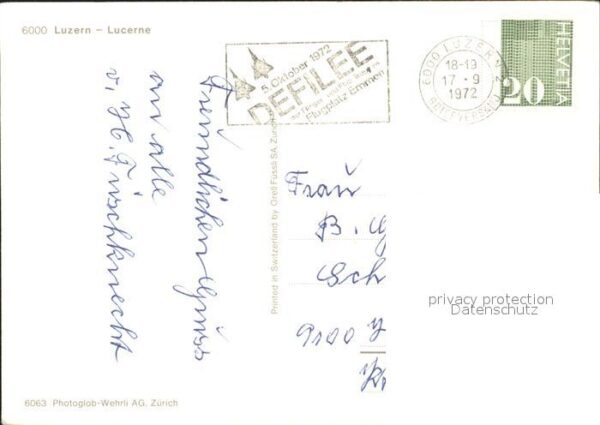 6000 Luzern – Lucerne
5. Oktober 1972
DEFILEE
Flugplatz Emmen
6000 LUZERN
18-19
17.-9
1972
BRIEFVERSAND
HELVETIA
20
Freundlichen Gruss
an alle
v. H. Frischknecht
Printed in Switzerland by Orell Füssli SA, Zürich
Frau
B. G
Sch
9100
privacy protection
Datenschutz
6063 Photoglob-Wehrli AG, Zürich